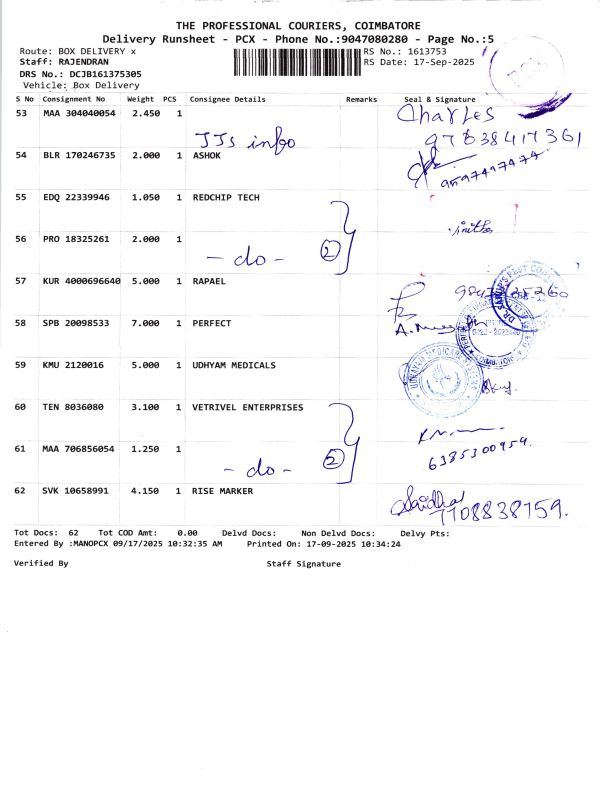 THE PROFESSIONAL COURIERS, COIMBATORE
Delivery Runsheet - PCX - Phone No.:9047080280 - Page No.:5
Route: BOX DELIVERY x RS No.: 1613753
Staff: RAJENDRAN RS Date: 17-Sep-2025
DRS No.: DCJB161375305
Vehicle: Box Delivery
S No Consignment No Weight PCS Consignee Details Remarks Seal & Signature
53 MAA 304040054 2.450 1 Charles
JJs info 97838417361
54 BLR 170246735 2.000 1 ASHOK
9597497474
55 EDQ 22339946 1.050 1 REDCHIP TECH
56 PRO 18325261 2.000 1
- do - 2
57 KUR 4000696640 5.000 1 RAPAEL
58 SPB 20098533 7.000 1 PERFECT
59 KMU 2120016 5.000 1 UDHYAM MEDICALS
60 TEN 8036080 3.100 1 VETRIVEL ENTERPRISES
61 MAA 706856054 1.250 1
6385300959.
- do - 2
62 SVK 10658991 4.150 1 RISE MARKER
7708838759.
Tot Docs: 62 Tot COD Amt: 0.00 Delvd Docs: Non Delvd Docs: Delvy Pts:
Entered By :MANOPCX 09/17/2025 10:32:35 AM Printed On: 17-09-2025 10:34:24
Verified By Staff Signature